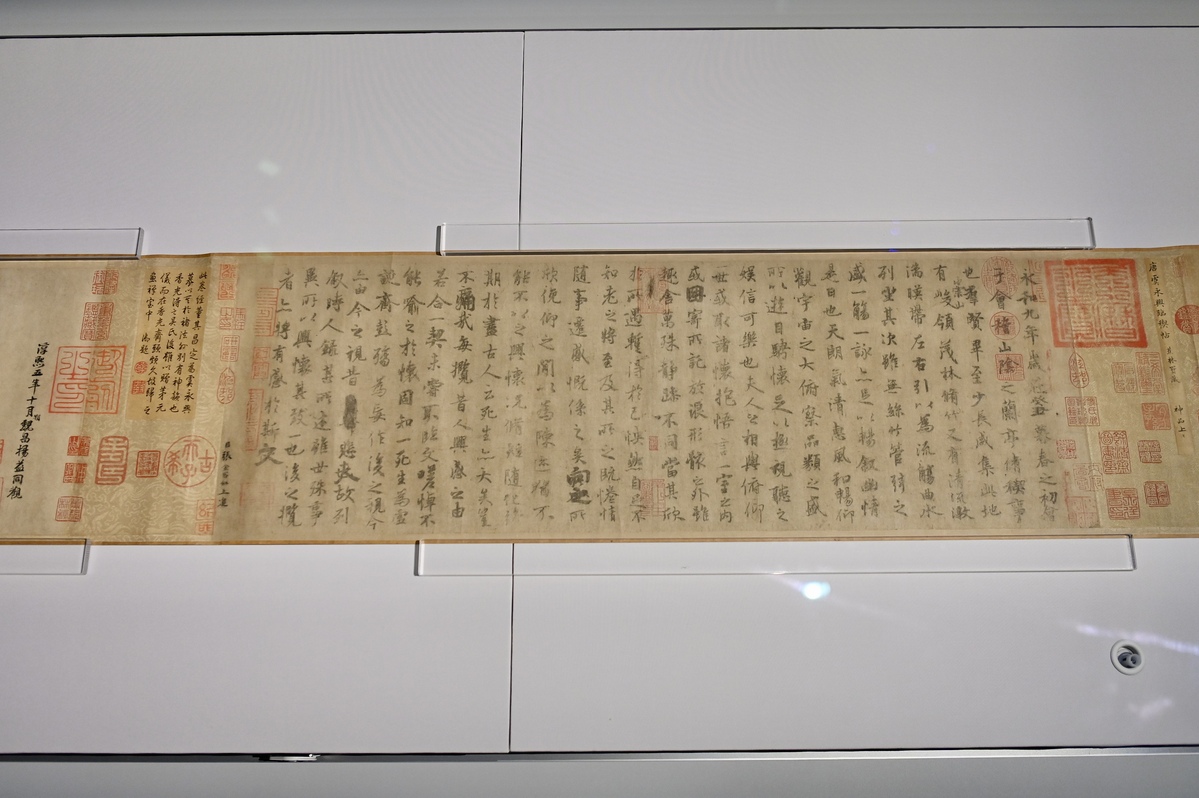 唐虞永興臨禊帖
永和九年歲在癸丑暮春之初會
于會稽山陰之蘭亭脩稧事
也羣賢畢至少長咸集此地
有崇山峻領茂林脩竹又有清流激
湍暎帶左右引以為流觴曲水
列坐其次雖無絲竹管弦之
盛一觴一詠亦足以暢敘幽情
是日也天朗氣清惠風和暢仰
觀宇宙之大俯察品類之盛
所以遊目騁懷足以極視聽之
娛信可樂也夫人之相與俯仰
一世或取諸懷抱悟言一室之內
或因寄所託放浪形骸之外雖
趣舍萬殊靜躁不同當其欣
於所遇暫得於己怏然自足不
知老之將至及其所之既惓情
隨事遷感慨係之矣向之所
欣俛仰之間以為陳迹猶不
能不以之興懷況脩短隨化終
期於盡古人云死生亦大矣豈
不痛哉每攬昔人興感之由
若合一契未嘗不臨文嗟悼不
能喻之於懷固知一死生為虛
誕齊彭殤為妄作後之視今
亦由今之視昔悲夫故列
敘時人錄其所述雖世殊事
異所以興懷其致一也後之攬
者亦將有感於斯文
臣張金界奴上進
此卷經董其昌定為虞永興
摹以其於褚法外別有神韻也
香光得之吳氏後以贈茅元
儀而在香光齋頭頗久後歸之
淳熙五年十月魏昌楊益同觀